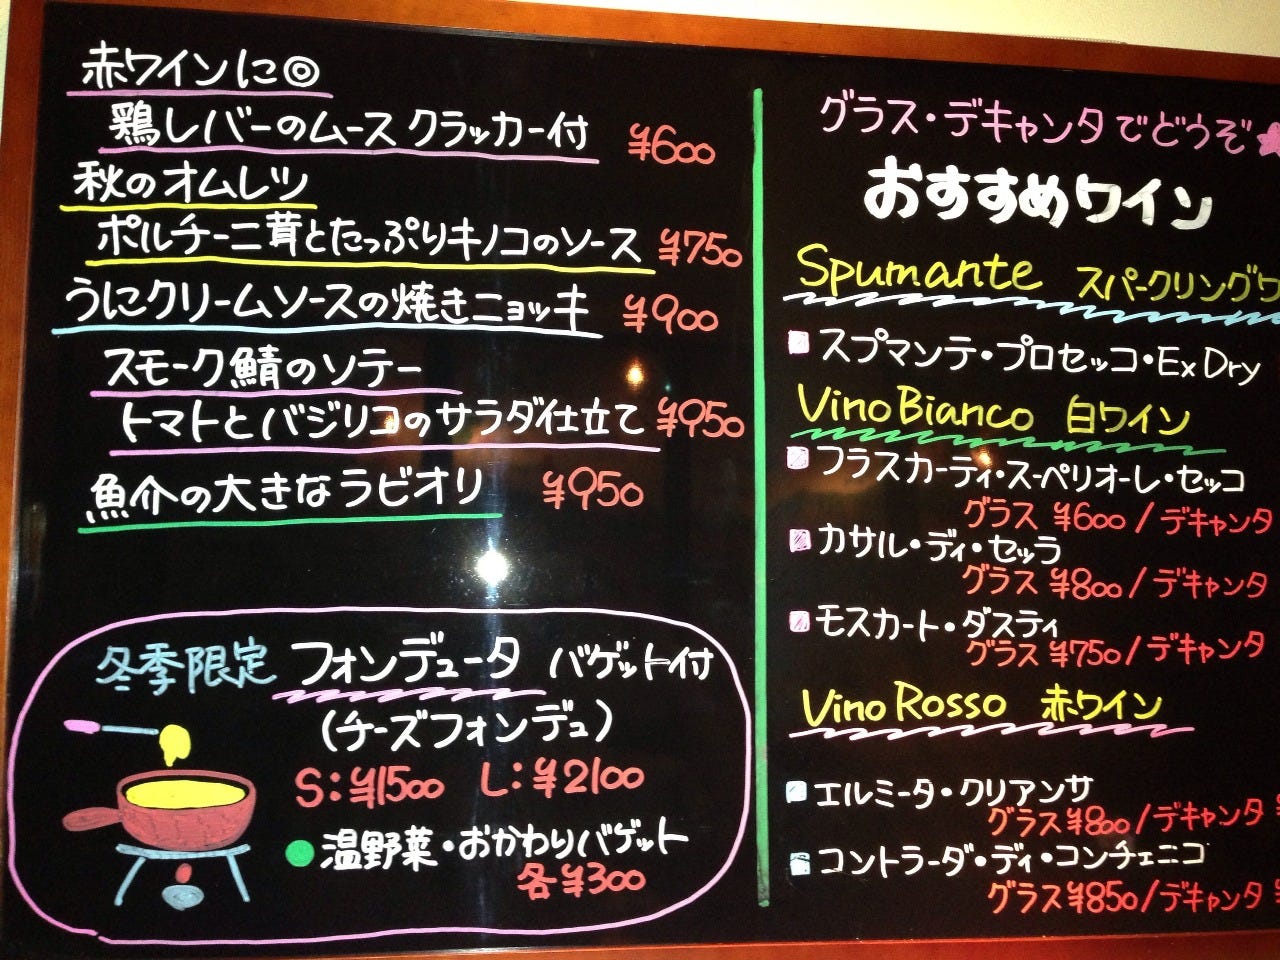 赤ワインに◎
鶏レバーのムース クラッカー付 ¥600
秋のオムレツ
ポルチーニ茸とたっぷりキノコのソース ¥750
うにクリームソースの焼きニョッキ ¥900
スモーク鯖のソテー
トマトとバジリコのサラダ仕立て ¥950
魚介の大きなラビオリ ¥950
冬季限定 フォンデュータ バゲット付
(チーズフォンデュ)
S:¥1500 L:¥2100
温野菜・おかわりバゲット
各¥300
グラス・デキャンタでどうぞ
おすすめワイン
Spumante スパークリングワ
スプマンテ・プロセッコ・Ex Dry
Vino Bianco 白ワイン
フラスカーティ・スーペリオーレ・セッコ
グラス ¥600 / デキャンタ
カサル・ディ・セッラ
グラス ¥800 / デキャンタ
モスカート・ダスティ
グラス ¥750 / デキャンタ
Vino Rosso 赤ワイン
エルミータ・クリアンサ
グラス ¥800 / デキャンタ
コントラーダ・ディ・コンチェニコ
グラス ¥850 / デキャンタ